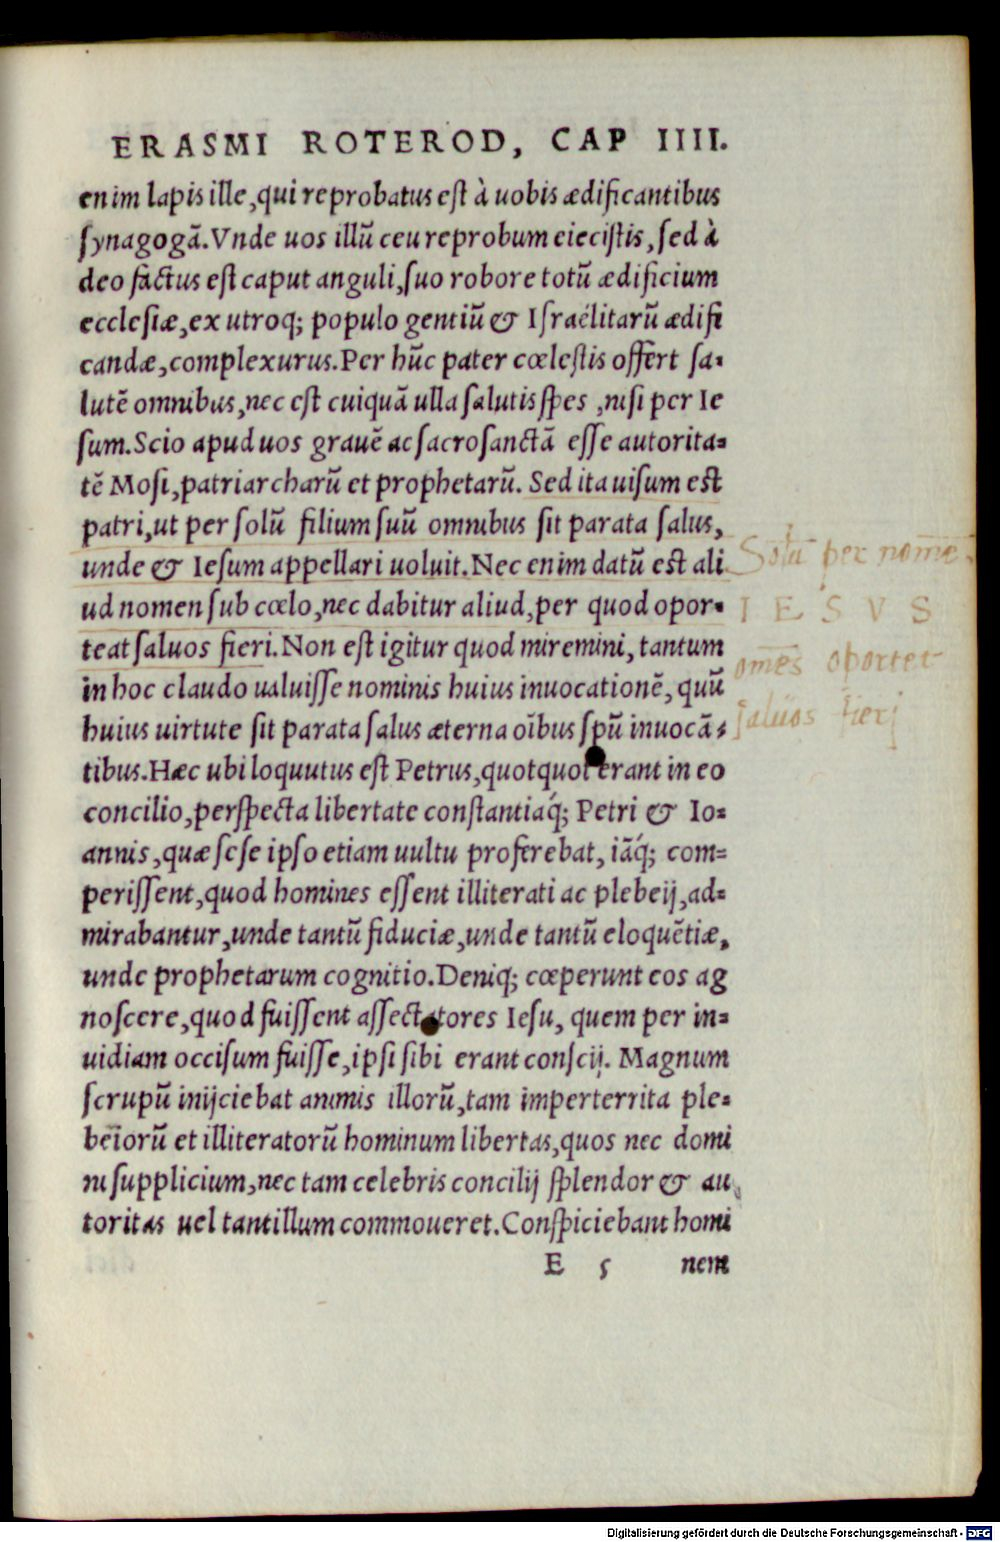 ERASMI ROTEROD, CAP IIII.
enim lapis ille, qui reprobatus eſt à uobis ædificantibus
ſynagogā. Vnde uos illū ceu reprobum eieciſtis, ſed à
deo factus eſt caput anguli, ſuo robore totū ædificium
eccleſiæ, ex utroq; populo gentiū & Iſraélitarū ædifi
candæ, complexurus. Per hūc pater cœleſtis offert ſa-
lutē omnibus, nec eſt cuiquā ulla ſalutis ſpes, niſi per Ie
ſum. Scio apud uos grauē ac ſacroſanctā eſſe autorita-
tē Moſi, patriarcharū et prophetarū. Sed ita uiſum eſt
patri, ut per ſolū filium ſuū omnibus ſit parata ſalus,
unde & Ieſum appellari uoluit. Nec enim datū eſt ali
ud nomen ſub cœlo, nec dabitur aliud, per quod opor-
teat ſaluos fieri. Non eſt igitur quod miremini, tantum
in hoc claudo ualuiſſe nominis huius inuocationē, quū
huius uirtute ſit parata ſalus æterna oībus ſpū inuocā-
tibus. Hæc ubi loquutus eſt Petrus, quotquot erant in eo
concilio, perſpecta libertate conſtantiaq́; Petri & Io-
annis, quæ ſeſe ipſo etiam uultu proferebat, iāq́; com-
periſſent, quod homines eſſent illiterati ac plebeij, ad-
mirabantur, unde tantū fiduciæ, unde tantū eloquētiæ,
unde prophetarum cognitio. Deniq; cœperunt eos ag
noſcere, quod fuiſſent aſſectatores Ieſu, quem per in-
uidiam occiſum fuiſſe, ipſi ſibi erant conſcij. Magnum
ſcrupū inijciebat animis illorū, tam imperterrita ple-
beiorū et illiteratorū hominum libertas, quos nec domi
ni ſupplicium, nec tam celebris concilij ſplendor & au
toritas uel tantillum commoueret. Conſpiciebant homi
E 5 nem
Solū per nomē
IESVS
omēs oportet
ſaluos fierj
Digitalisierung gefördert durch die Deutsche Forschungsgemeinschaft - DFG